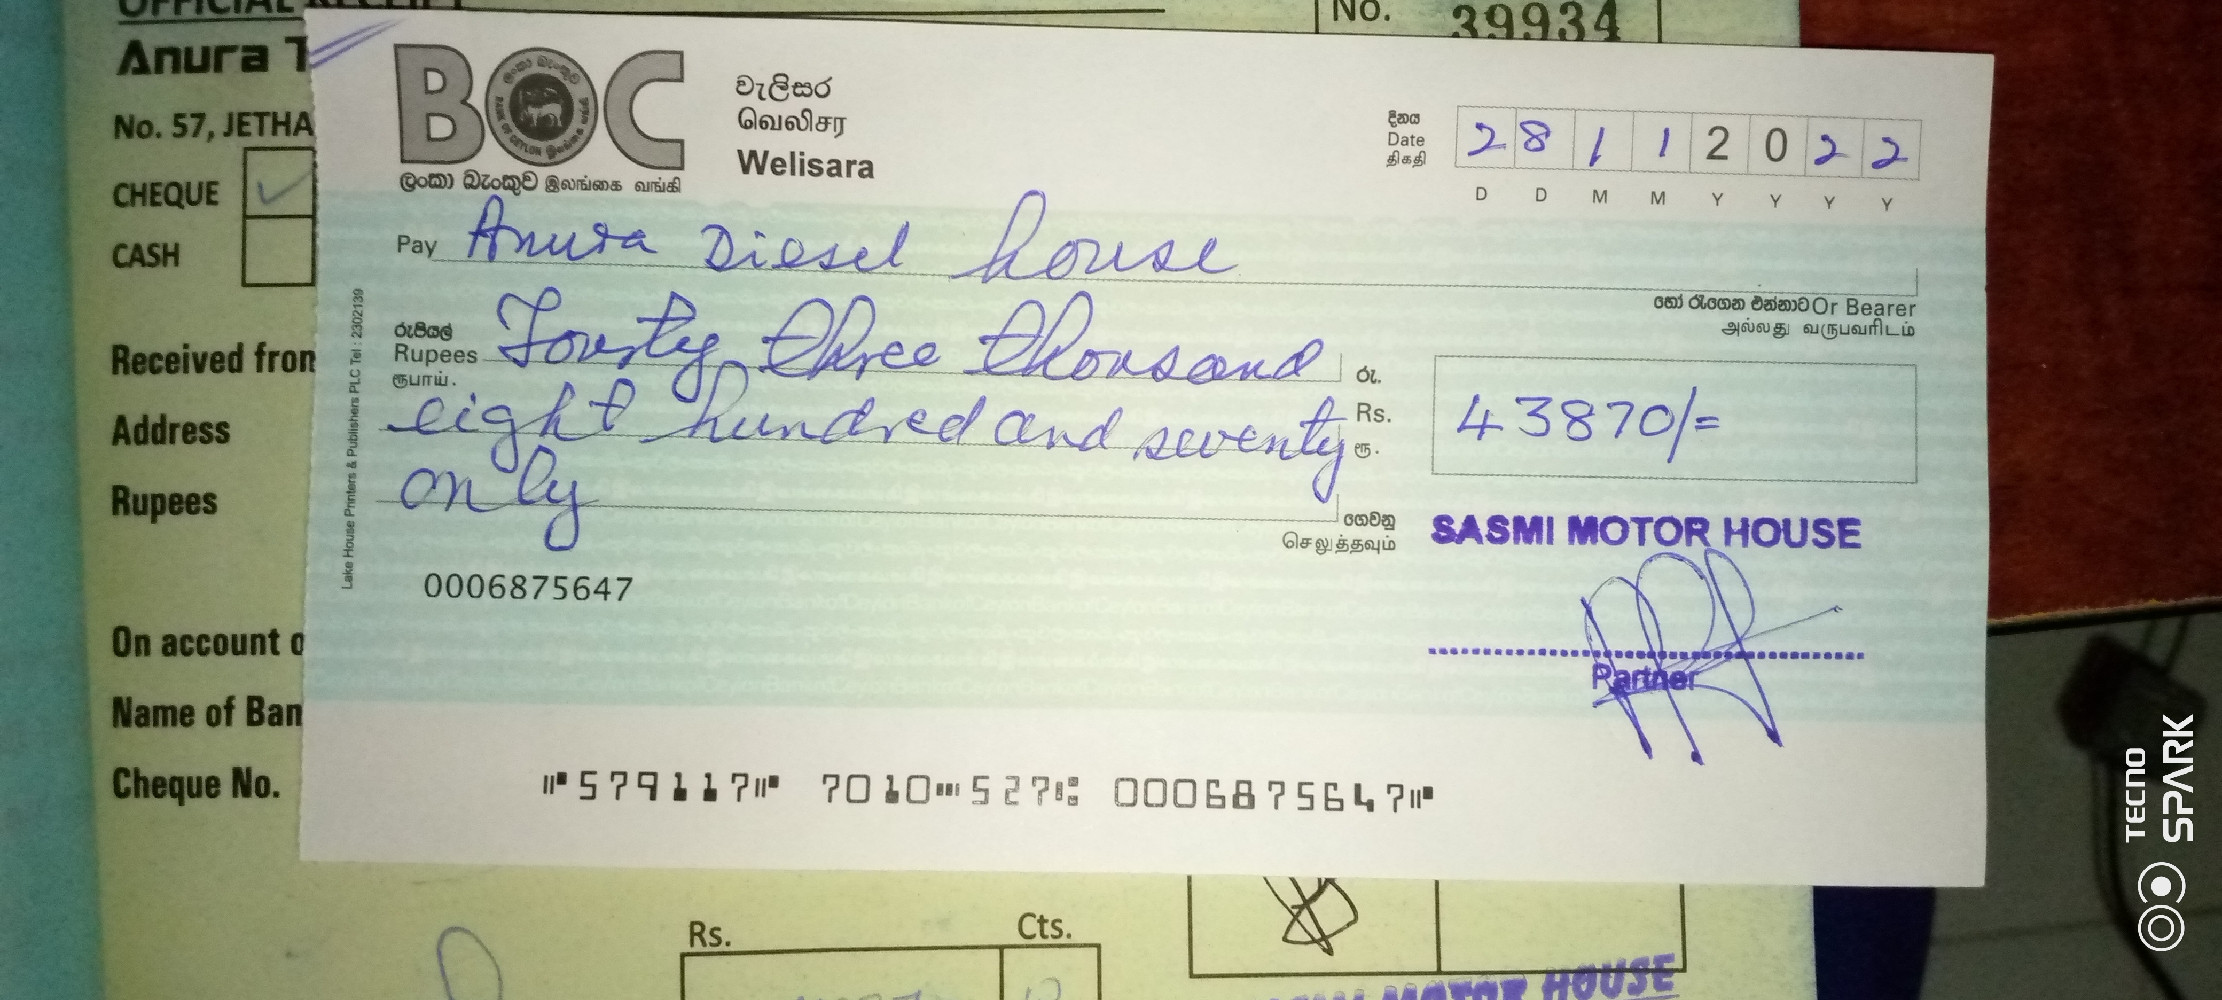 OFFICIAL RECEIPT
No. 39934
Anura
No. 57, JETHA
CHEQUE
CASH
Received from
Address
Rupees
On account o
Name of Ban
Cheque No.
BOC
ලංකා බැංකුව
BANK OF CEYLON
ලංකා බැංකුව இலங்கை வங்கி
වැලිසර
வெலிசர
Welisara
දිනය
Date
திகதி
2 8 1 1 2 0 2 2
D D M M Y Y Y Y
Pay Anura Diesel house
හෝ රැගෙන එන්නාට Or Bearer
அல்லது வருபவரிடம்
රුපියල්
Rupees
ரூபாய்.
Fourty three thousand
eight hundred and seventy
only
රු.
Rs.
ரூ.
43870/=
ගෙවනු
செலுத்தவும்
SASMI MOTOR HOUSE
Partner
0006875647
Lake House Printers & Publishers PLC Tel : 2302139
⑈579117⑈ 7010⑉527⑆ 0006875647⑈
Rs.
Cts.
MOTOR HOUSE
TECNO
SPARK